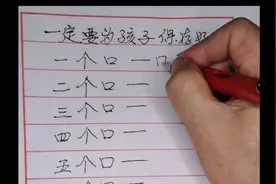 一定要为孩子保存好
一个口一口
二个口一
三个口一
四个口一
五个口一